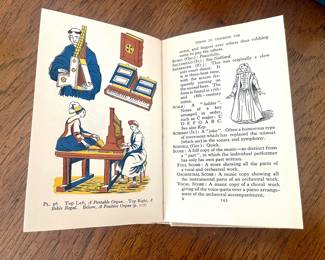 Pl. 96. Top Left, A Portable Organ. Top Right, A
Bible Regal. Below, A Positive Organ (p. 117)
TERMS IN COMMON USE
more, and linger over others thus robbing
some to pay others.
Saltarello (It.): This
was originally a slow
It is
SCALE: A "ladder".
Notes of a key
arranged in order,
such as C major: C
D E F G A B C.
See also Key.
SCHERZO (It.): A "joke". Often a humorous type
of movement which has replaced the minuet
(which see) in the symphony.
SCHNELL (Ger.): Quick.
SCORE: A full copy of the music—as distinct from
a "part", in which the individual performer
has only his own part written.
FULL SCORE: A score showing all the parts of
a vocal and orchestral work.
ORCHESTRAL SCORE: A music copy showing all
the instrumental parts of an orchestral work.
VOCAL SCORE: A music copy of a choral work
giving the voice-parts over a piano arrangement
of the orchestral accompaniment.
143